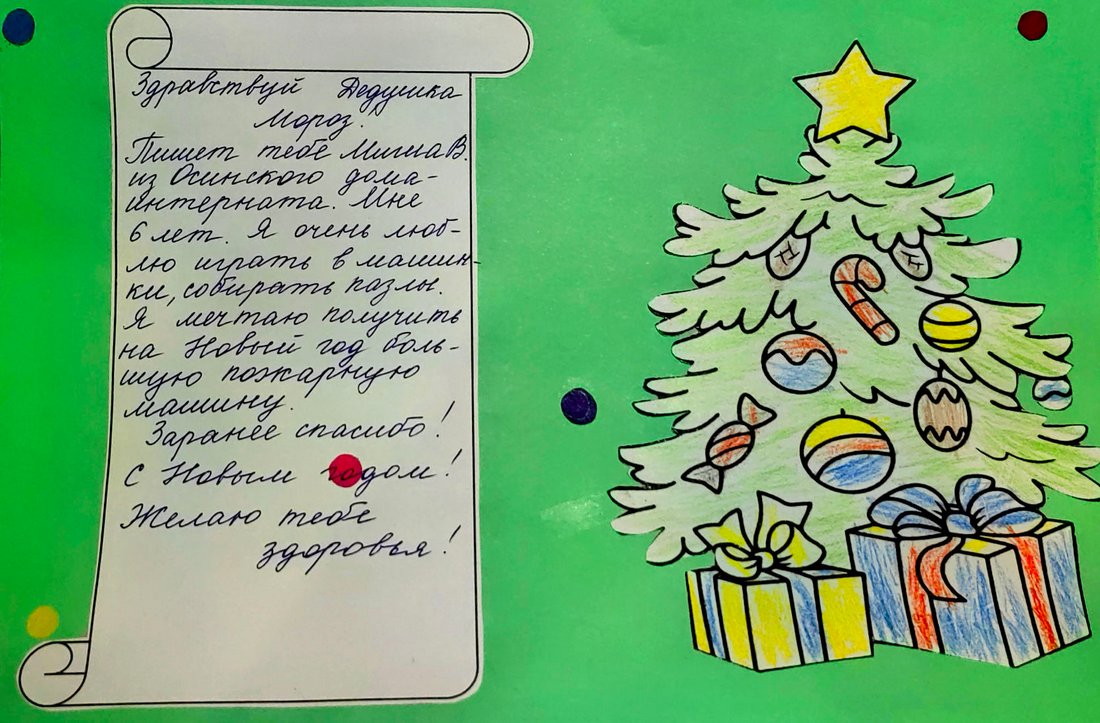 Здравствуй Дедушка
Мороз.
Пишет тебе Миша В.
из Осинского дома-
интерната. Мне
6 лет. Я очень люб-
лю играть в машин-
ки, собирать пазлы.
Я мечтаю получить
на Новый год боль-
шую пожарную
машину.
Заранее спасибо!
С Новым годом!
Желаю тебе
здоровья!